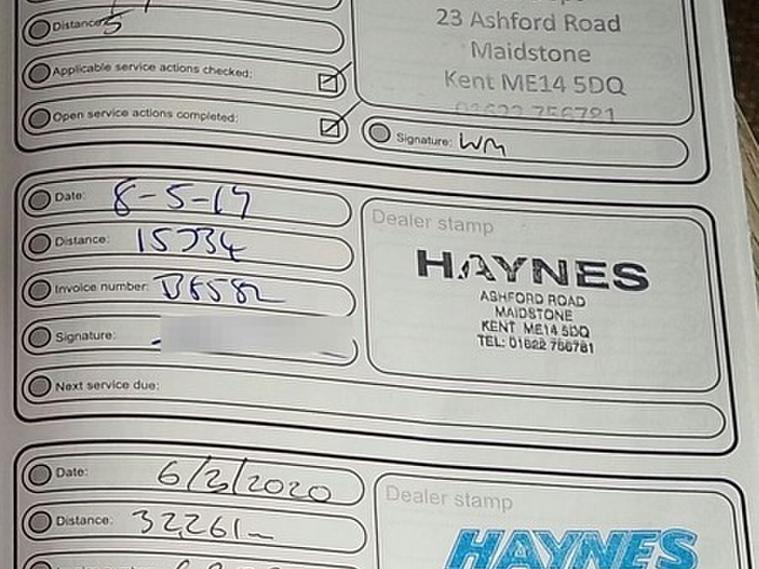 23 Ashford Road
Distance: 5
Maidstone
Applicable service actions checked:
Kent ME14 5DQ
01622 756781
Open service actions completed:
Signature: WM
Date: 8-5-19
Dealer stamp
Distance: 15734
HAYNES
Invoice number: B8582
ASHFORD ROAD
MAIDSTONE
KENT ME14 5DQ
TEL: 01622 756781
Signature:
Next service due:
Date: 6/3/2020
Dealer stamp
Distance: 32,261
HAYNES